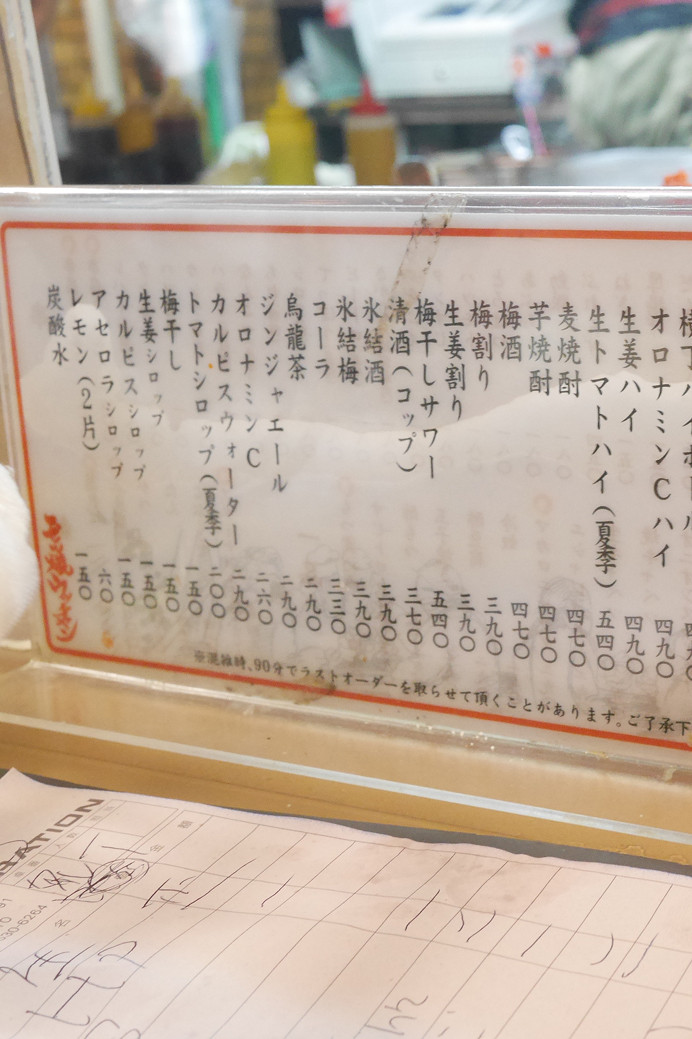 オロナミンCハイ 四九〇
生姜ハイ 四九〇
生トマトハイ(夏季) 五四〇
麦焼酎 四七〇
芋焼酎 四七〇
梅酒 四七〇
梅割り 三九〇
生姜割り 三九〇
梅干しサワー 五四〇
清酒(コップ) 三七〇
氷結酒 三九〇
氷結梅 三九〇
コーラ 三三〇
烏龍茶 二九〇
ジンジャエール 二九〇
オロナミンC 二六〇
カルピスウォーター 二九〇
トマトシロップ(夏季) 二〇〇
梅干し 一五〇
生姜シロップ 一五〇
カルピスシロップ 一五〇
アセロラシロップ 一五〇
レモン(2片) 六〇
炭酸水 一五〇
※混雑時、90分でラストオーダーを取らせて頂くことがあります。ご了承下